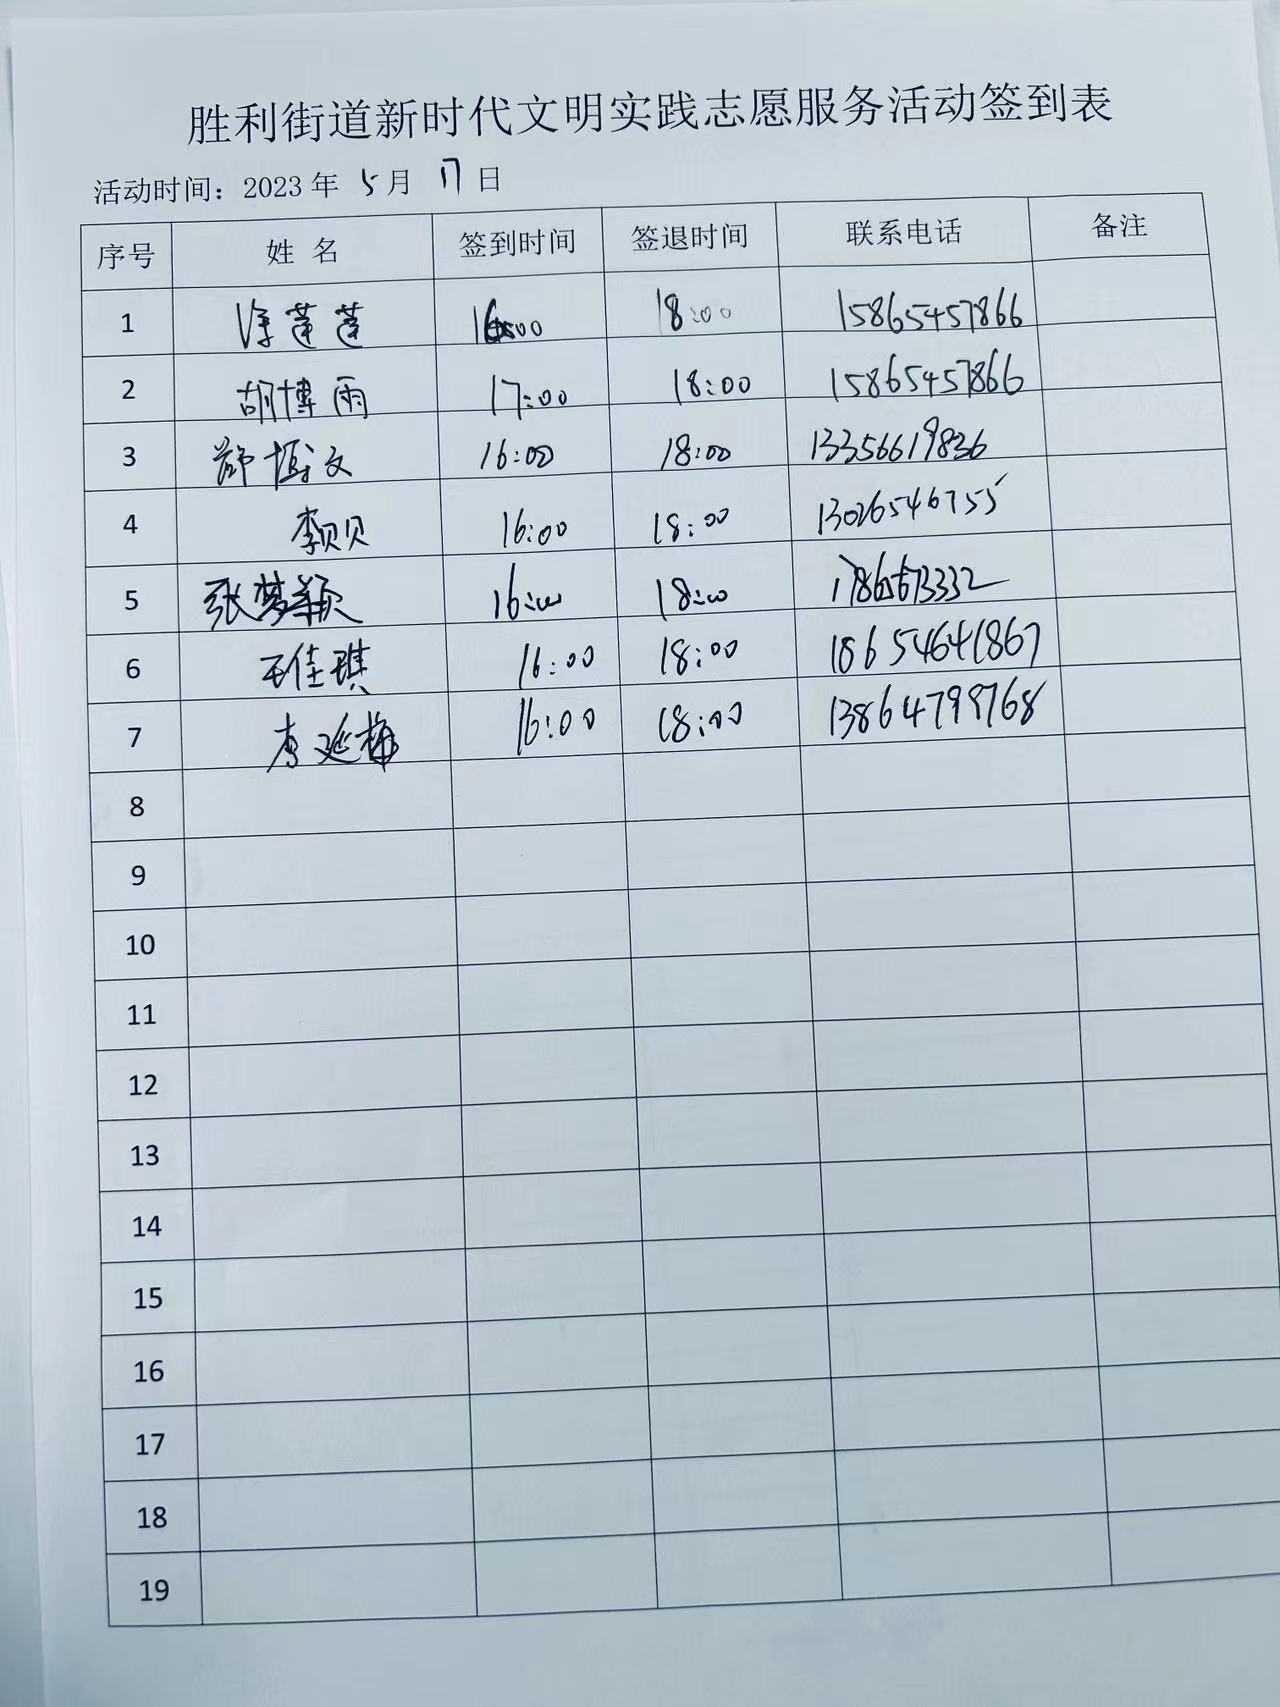 胜利街道新时代文明实践志愿服务活动签到表
活动时间：2023年 5月 17日
序号 姓 名 签到时间 签退时间 联系电话 备注
1 徐莲莲 16:00 18:00 15865457866
2 胡博雨 17:00 18:00 15865457866
3 郑博文 16:00 18:00 13356619836
4 李贝贝 16:00 18:00 13026546755
5 张梦颖 16:00 18:00
6 王佳琪 16:00 18:00 18654641867
7 李延梅 16:00 18:00 13864799768
8
9
10
11
12
13
14
15
16
17
18
19